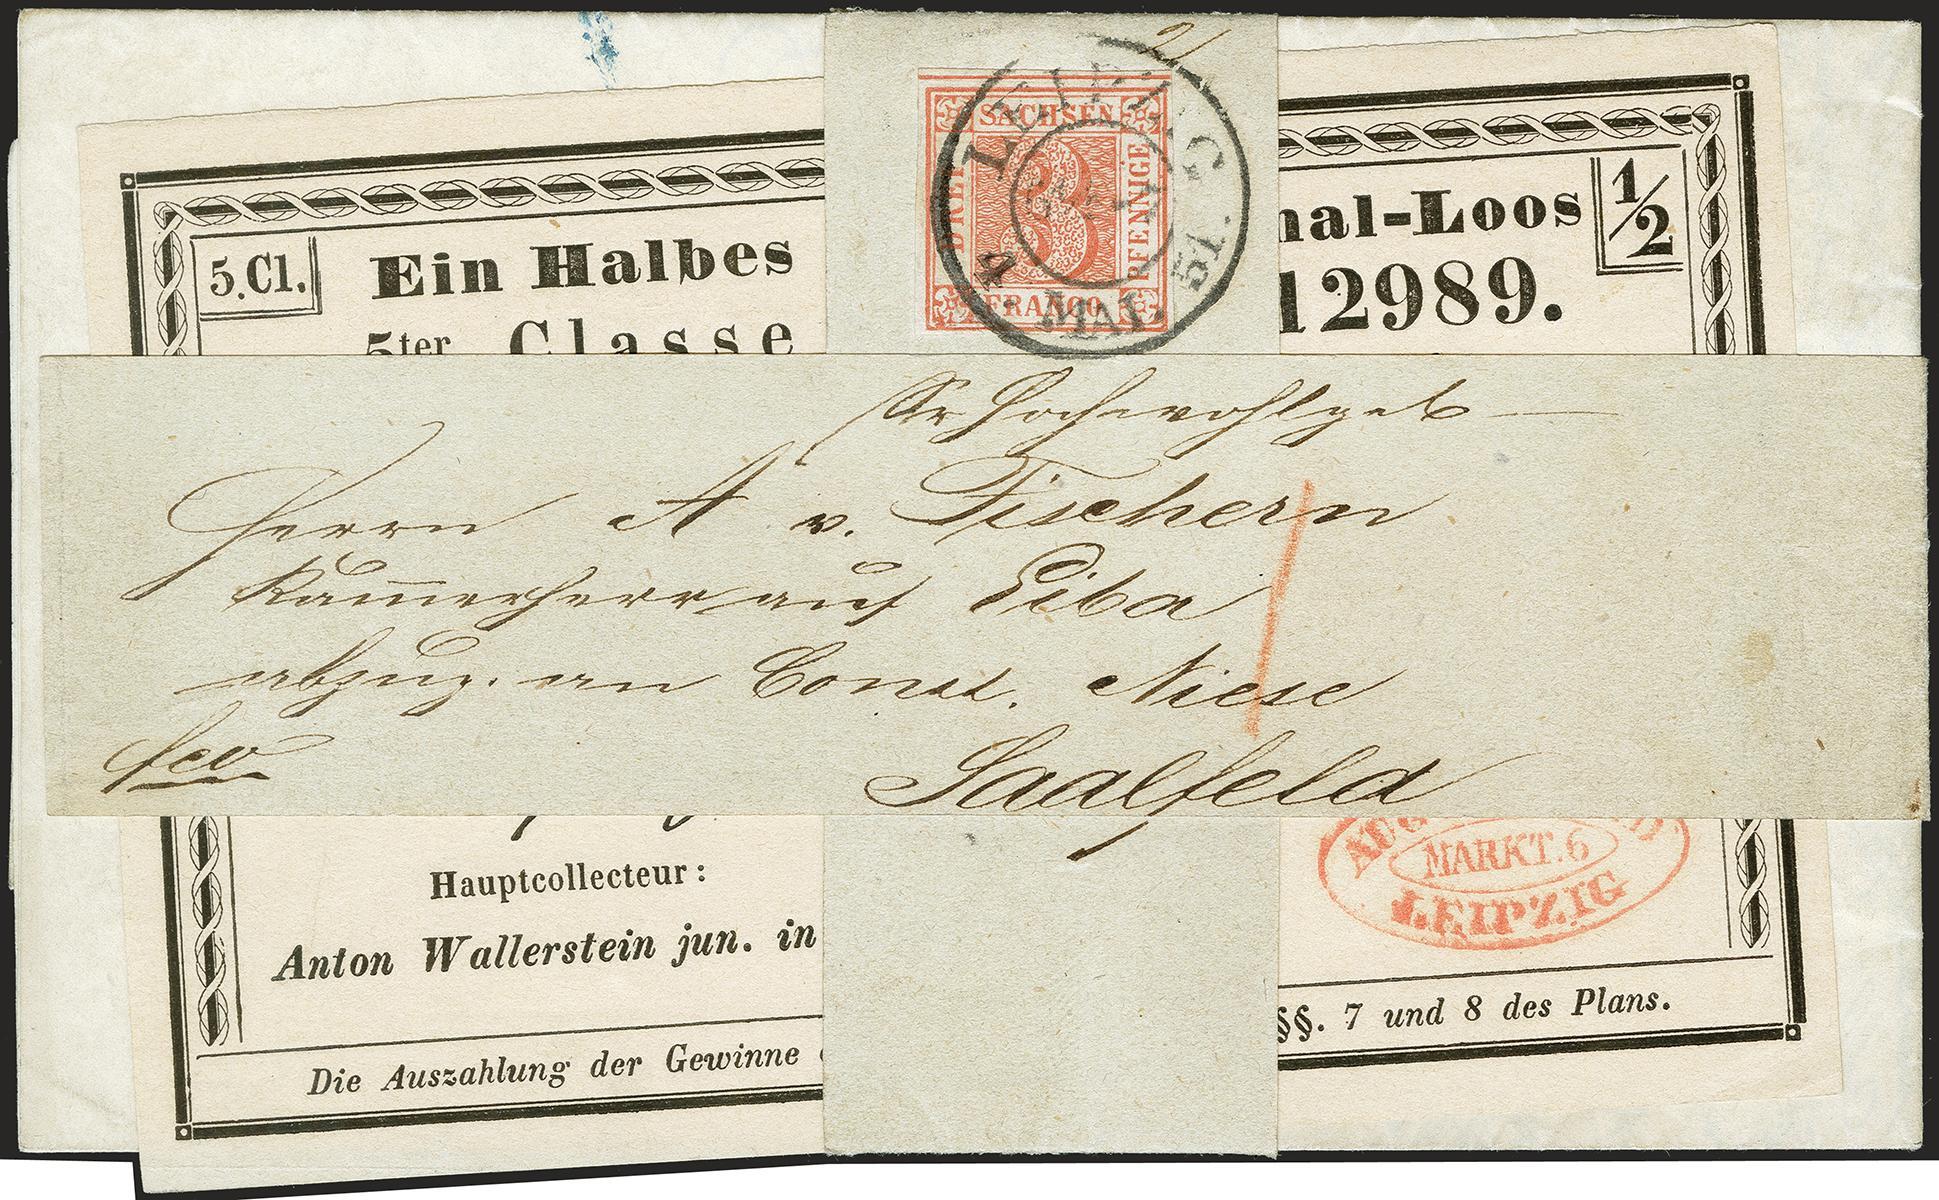 2/
SACHSEN
DREI
3
PFENNIGE
FRANCO
LEIPZIG
4 MAI 51
5.Cl.
Ein Halbes
nal-Loos
1/2
5ter Classe
12989.
Sr Hochwohlgeb
Herrn A v. Fischern
Kammerherr auf Eiba
abzug. an Const. Niese
fco
Saalfeld
MARKT.6
LEIPZIG
Hauptcollecteur:
Anton Wallerstein jun. in
§§. 7 und 8 des Plans.
Die Auszahlung der Gewinne